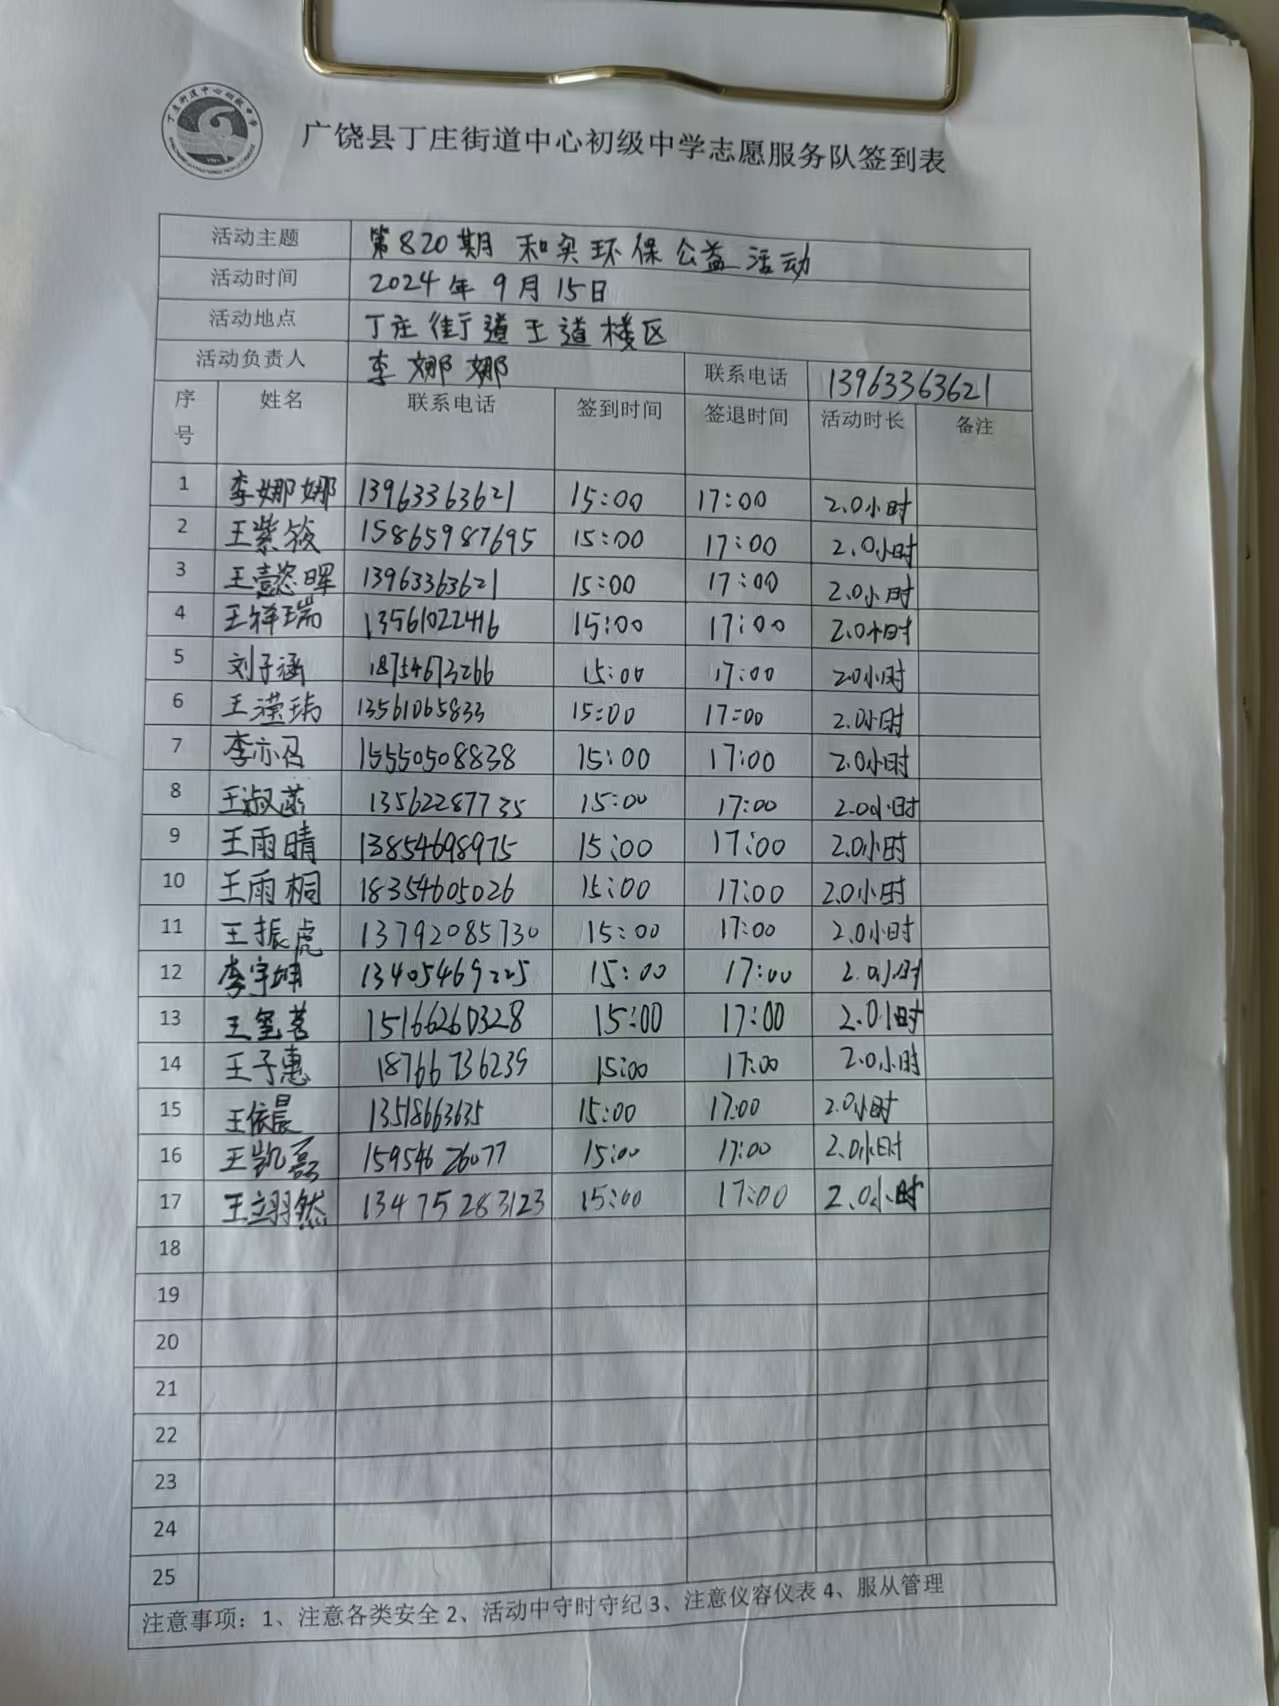 广饶县丁庄街道中心初级中学志愿服务队签到表
活动主题 第820期 和奕环保公益活动
活动时间 2024年9月15日
活动地点 丁庄街道王道楼区
活动负责人 李娜娜 联系电话 13963363621
序号 姓名 联系电话 签到时间 签退时间 活动时长 备注
1 李娜娜 13963363621 15:00 17:00 2.0小时
2 王紫筱 15865987695 15:00 17:00 2.0小时
3 王懿晖 13963363621 15:00 17:00 2.0小时
4 王祥瑞 13561022416 15:00 17:00 2.0小时
5 刘子涵 18754673266 15:00 17:00 2.0小时
6 王滢瑀 13561065833 15:00 17:00 2.0小时
7 李亦 15550508838 15:00 17:00 2.0小时
8 王淑菡 13562287735 15:00 17:00 2.0小时
9 王雨晴 13854698975 15:00 17:00 2.0小时
10 王雨桐 18354605026 15:00 17:00 2.0小时
11 王振虎 13792085730 15:00 17:00 2.0小时
12 李宇坤 13405469225 15:00 17:00 2.0小时
13 王玺茗 15166260328 15:00 17:00 2.0小时
14 王子惠 18766736239 15:00 17:00 2.0小时
15 王依晨 13518663635 15:00 17:00 2.0小时
16 王凯磊 15954626077 15:00 17:00 2.0小时
17 王翊然 13475283123 15:00 17:00 2.0小时
18
19
20
21
22
23
24
25
注意事项：1、注意各类安全 2、活动中守时守纪 3、注意仪容仪表 4、服从管理